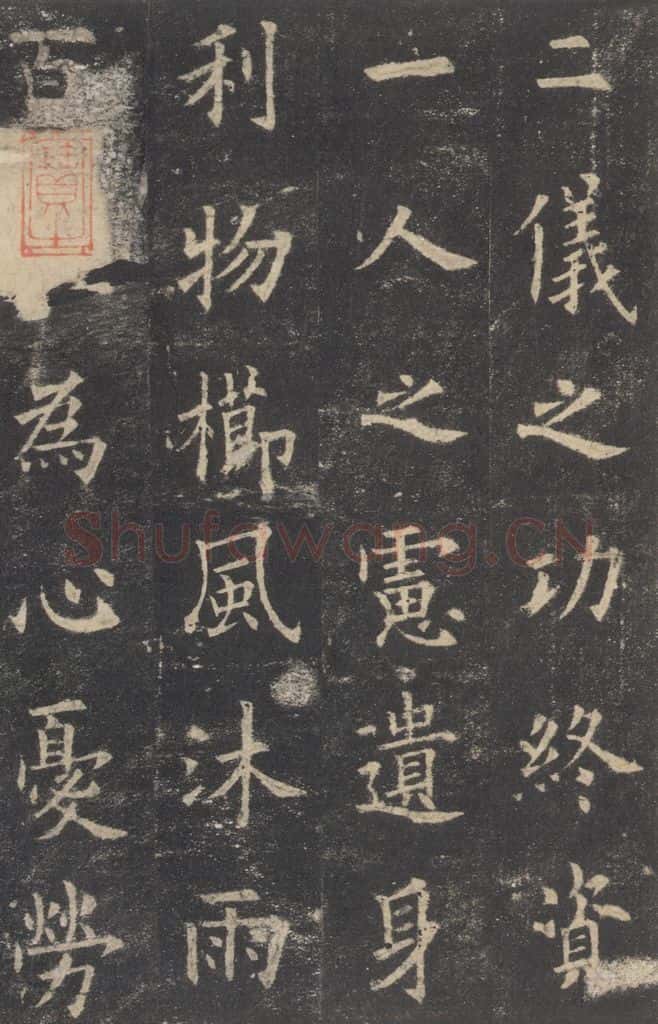 二儀之功終資
一人之慮遺身
利物櫛風沐雨
百為心憂勞
Shufawang.CN